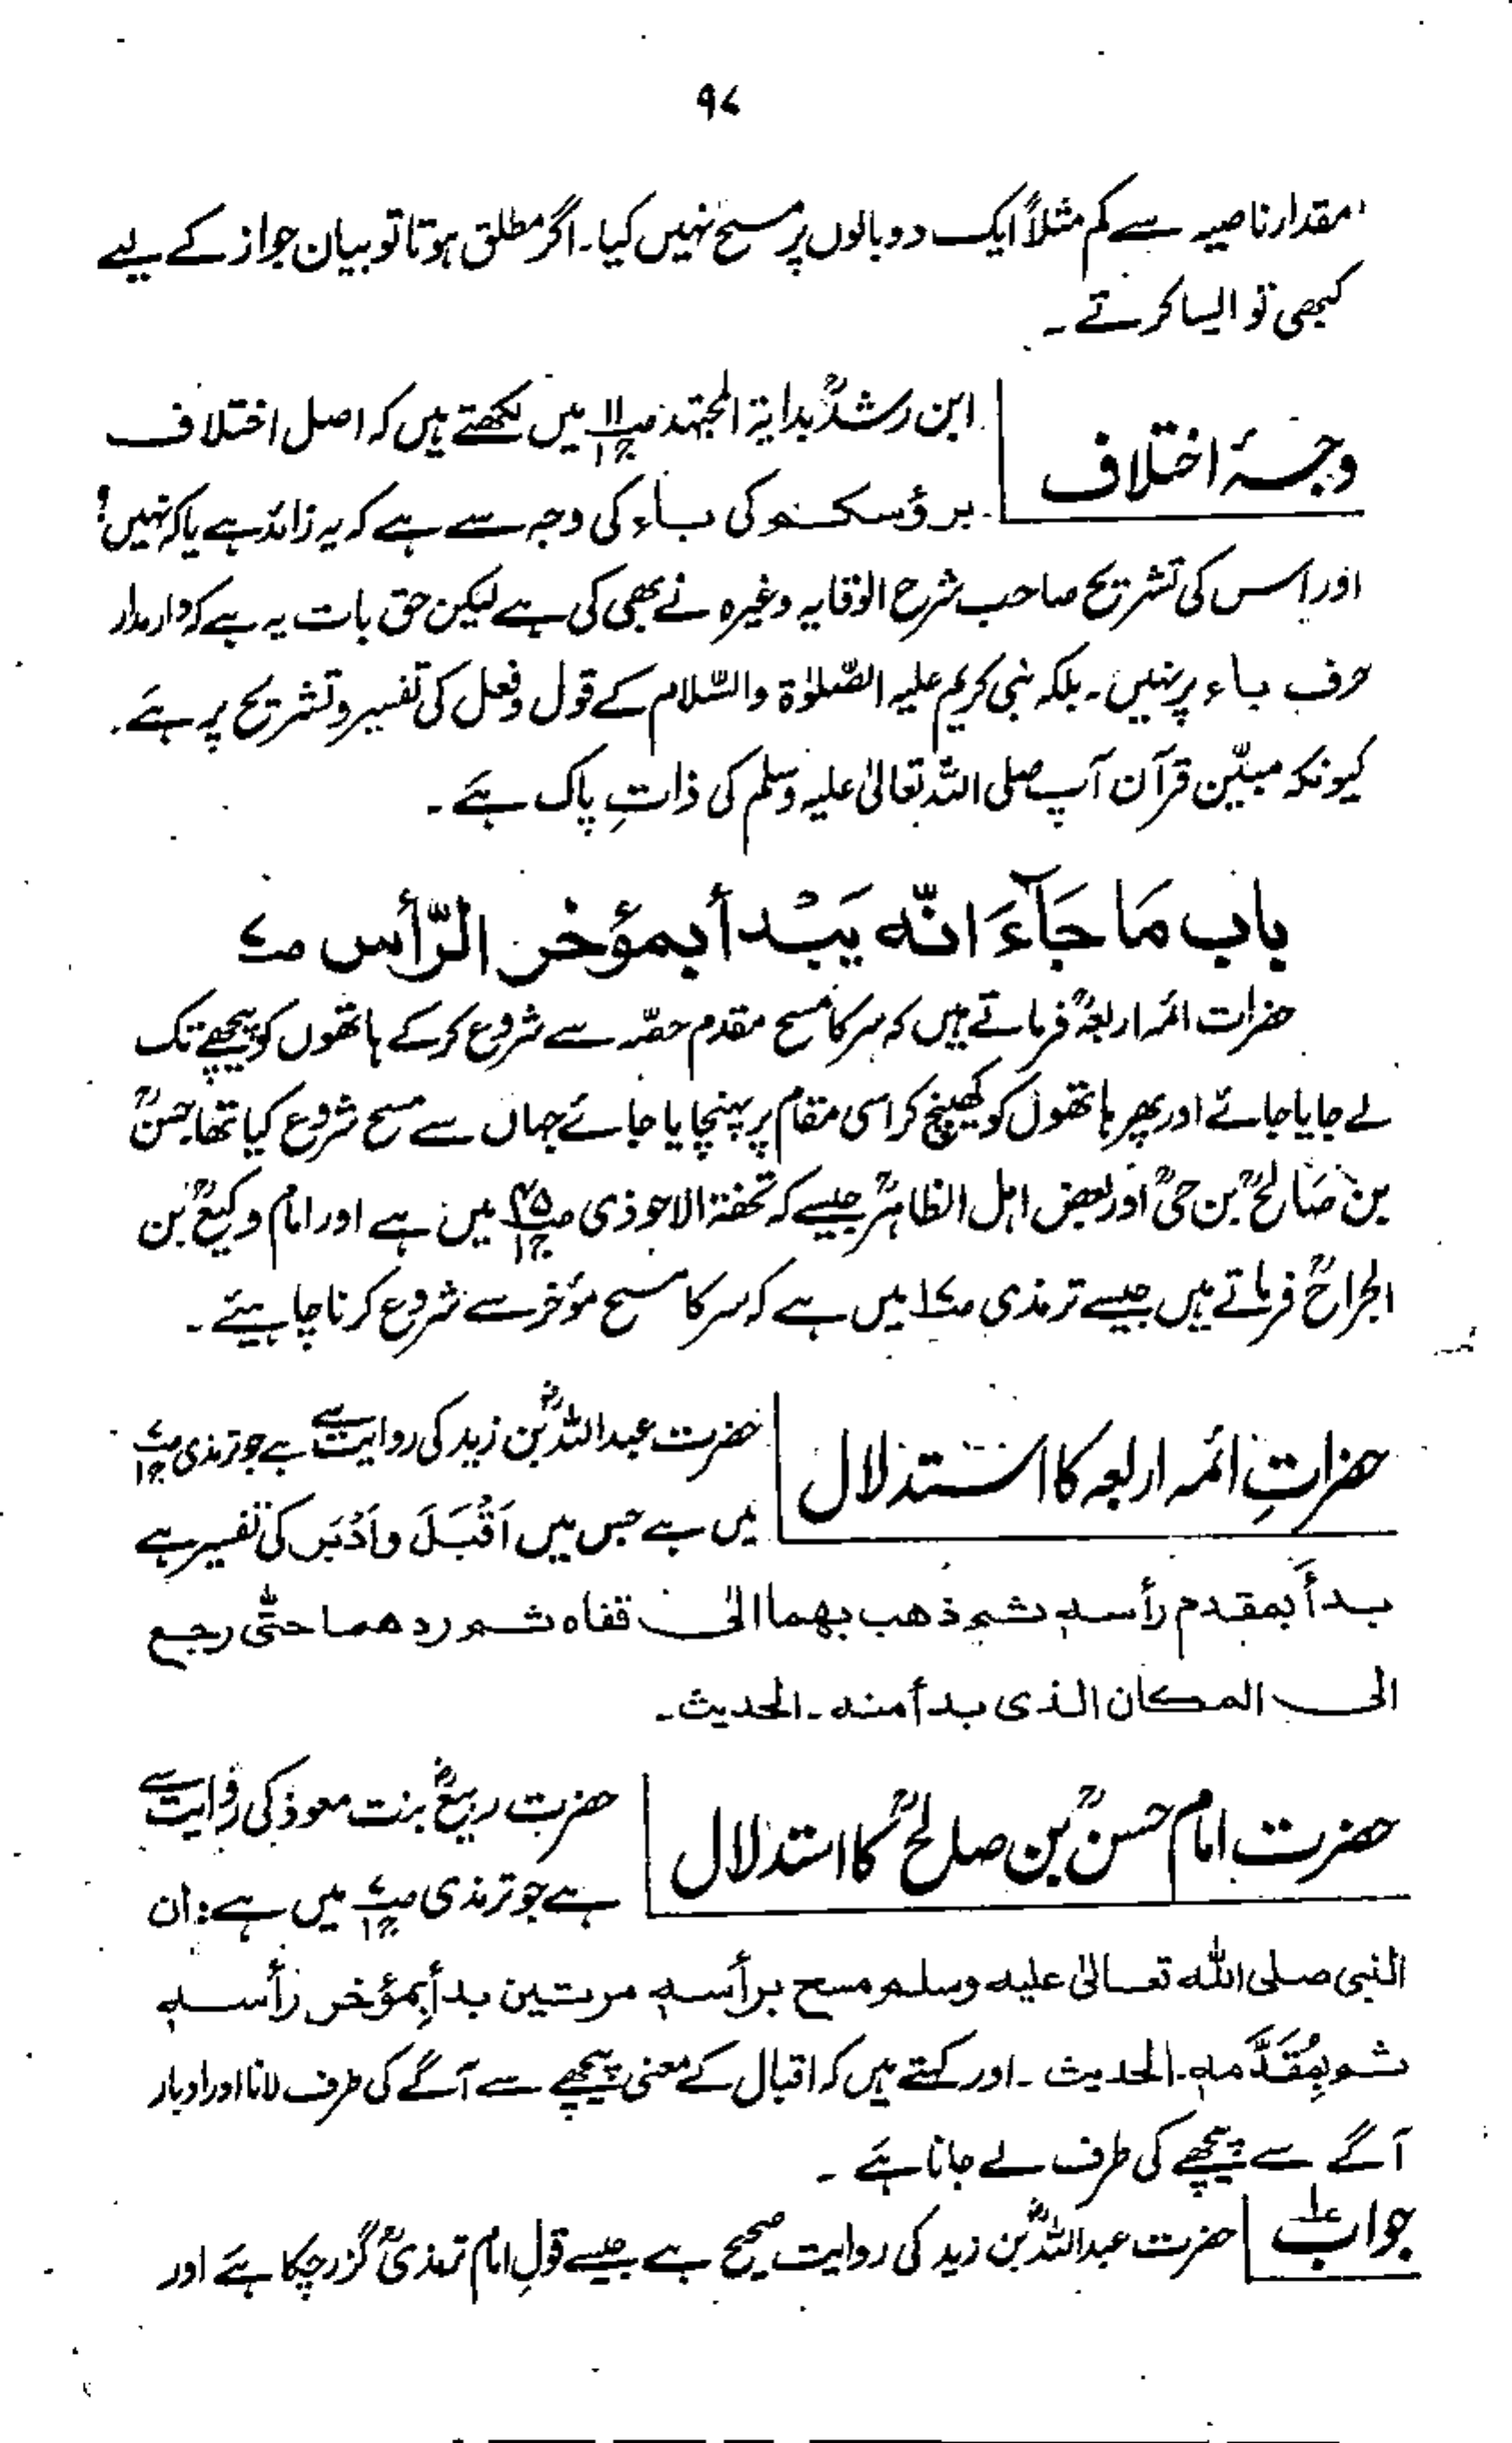 ۹۷
مقدار ناصیہ سے کم مثلاً ایک دو بالوں پر مسح نہیں کیا۔ اگر مطلق ہوتا تو بیان جواز کے لیے
کبھی تو ایسا کرتے ۔
وجۂ اختلاف
ابن رشدؒ بدایۃ المجتہد ص۱۱ ج۱ میں لکھتے ہیں کہ اصل اختلاف
برؤسکم کی باء کی وجہ سے ہے کہ یہ زائد ہے یا کہ نہیں؟
اور اس کی تشریح صاحب شرح الوقایہ وغیرہ نے بھی کی ہے لیکن حق بات یہ ہے کہ دارمدار
حرف باء پر نہیں۔ بلکہ نبی کریم علیہ الصّلوٰۃ والسّلام کے قول و فعل کی تفسیر و تشریح پر ہے۔
کیونکہ مبیّن قرآن آپ صلی اللہ تعالیٰ علیہ وسلم کی ذاتِ پاک ہے ۔
باب مَا جَآءَ انّہ یَبْدأ بمؤخر الرّأس ص۷
حضرات ائمہ اربعہؒ فرماتے ہیں کہ سر کا مسح مقدم حصّہ سے شروع کر کے ہاتھوں کو پیچھے تک
لے جایا جائے اور پھر ہاتھوں کو کھینچ کر اسی مقام پر پہنچایا جائے جہاں سے مسح شروع کیا تھا۔ حسنؒ
بن صالحؒ بن حیؒ اور بعض اہل الظاہرؒ جیسے کہ تحفۃ الاحوذی ص۴۵ ج۱ میں ہے اور امام وکیعؒ بن
الجراحؒ فرماتے ہیں جیسے ترمذی ص۷ ج۱ میں ہے کہ سر کا مسح مؤخر سے شروع کرنا چاہیئے ۔
حضراتِ ائمہ اربعہ کا استدلال
حضرت عبداللہؓ بن زید کی روایت سے ہے جو ترمذی ص۷ ج۱
میں ہے جس میں اَقْبَلَ و اَدْبَر کی تفسیر ہے
بدأ بمقدم رأسہٖ ثم ذھب بھما الیٰ قفاہ ثم ردھما حتّٰی رجع
الی المکان الذی بدأ منہ ۔ الحدیث ۔
حضرت امام حسنؒ بن صالحؒ کا استدلال
حضرت ربیعؓ بنت معوذ کی روایت سے
ہے جو ترمذی ص۷ ج۱ میں ہے : ان
النبی صلی اللہ تعالیٰ علیہ وسلم مسح برأسہٖ مرتین بدأ بِمؤخر رأسہٖ
ثم بِمُقَدَّمہٖ۔ الحدیث ۔ اور کہتے ہیں کہ اقبال کے معنی پیچھے سے آگے کی طرف لانا اور ادبار
آگے سے پیچھے کی طرف لے جانا ہے ۔
جواب ۱؎
حضرت عبداللہؓ بن زید کی روایت صحیح ہے جیسے قولِ امام ترمذیؒ گزر چکا ہے اور